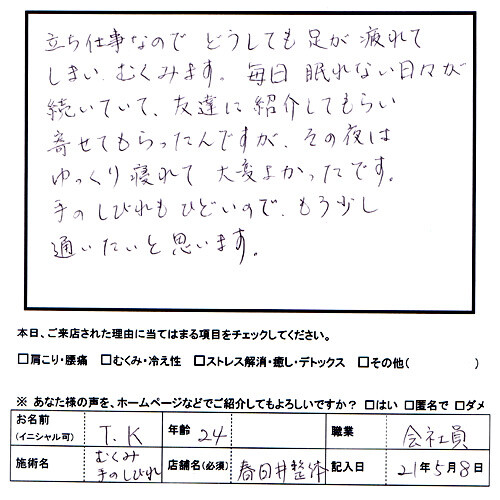 立ち仕事なので どうしても 足が 疲れて
しまい、むくみます。毎日 眠れない日々が
続いていて、友達に紹介してもらい
寄せてもらったんですが、その夜は
ゆっくり寝れて 大変よかったです。
手のしびれもひどいので、もう少し
通いたいと思います。
本日、ご来店された理由に当てはまる項目をチェックしてください。
□肩こり・腰痛 □むくみ・冷え性 □ストレス解消・癒し・デトックス □その他( )
※ あなた様の声を、ホームページなどでご紹介してもよろしいですか？ □はい □匿名で □ダメ
お名前(イニシャル可) T.K 年齢 24 職業 会社員
施術名 むくみ 手のしびれ 店舗名(必須) 春日井整体 記入日 21年5月8日